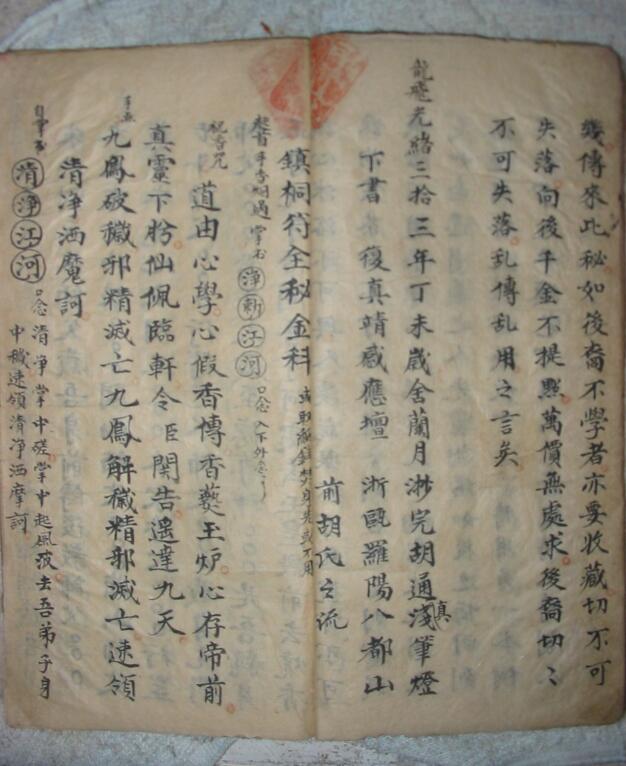 傳來此秘如後裔不學者亦要收藏切不可
失落向後千金不提點萬價無處求後裔切々
不可失落乱傳乱用之言矣
龍飛光緒三拾三年丁未歲舍蘭月浙完胡通淺真筆燈
下書奏復真靖感應壇 浙甌羅陽八都山
前胡氏之流
鎮桐符全秘金科
掌書淨新江河口念
祝香咒
道由心學心假香傳香爇玉炉心存帝前
真靈下盼仙佩臨軒令臣関告逕達九天
九鳳破穢邪精滅亡九鳳解穢精邪滅亡速領
清淨洒魔訶
清淨江河
口念清淨掌中磋掌中起風波去吾弟子身
中穢速領清淨洒摩訶